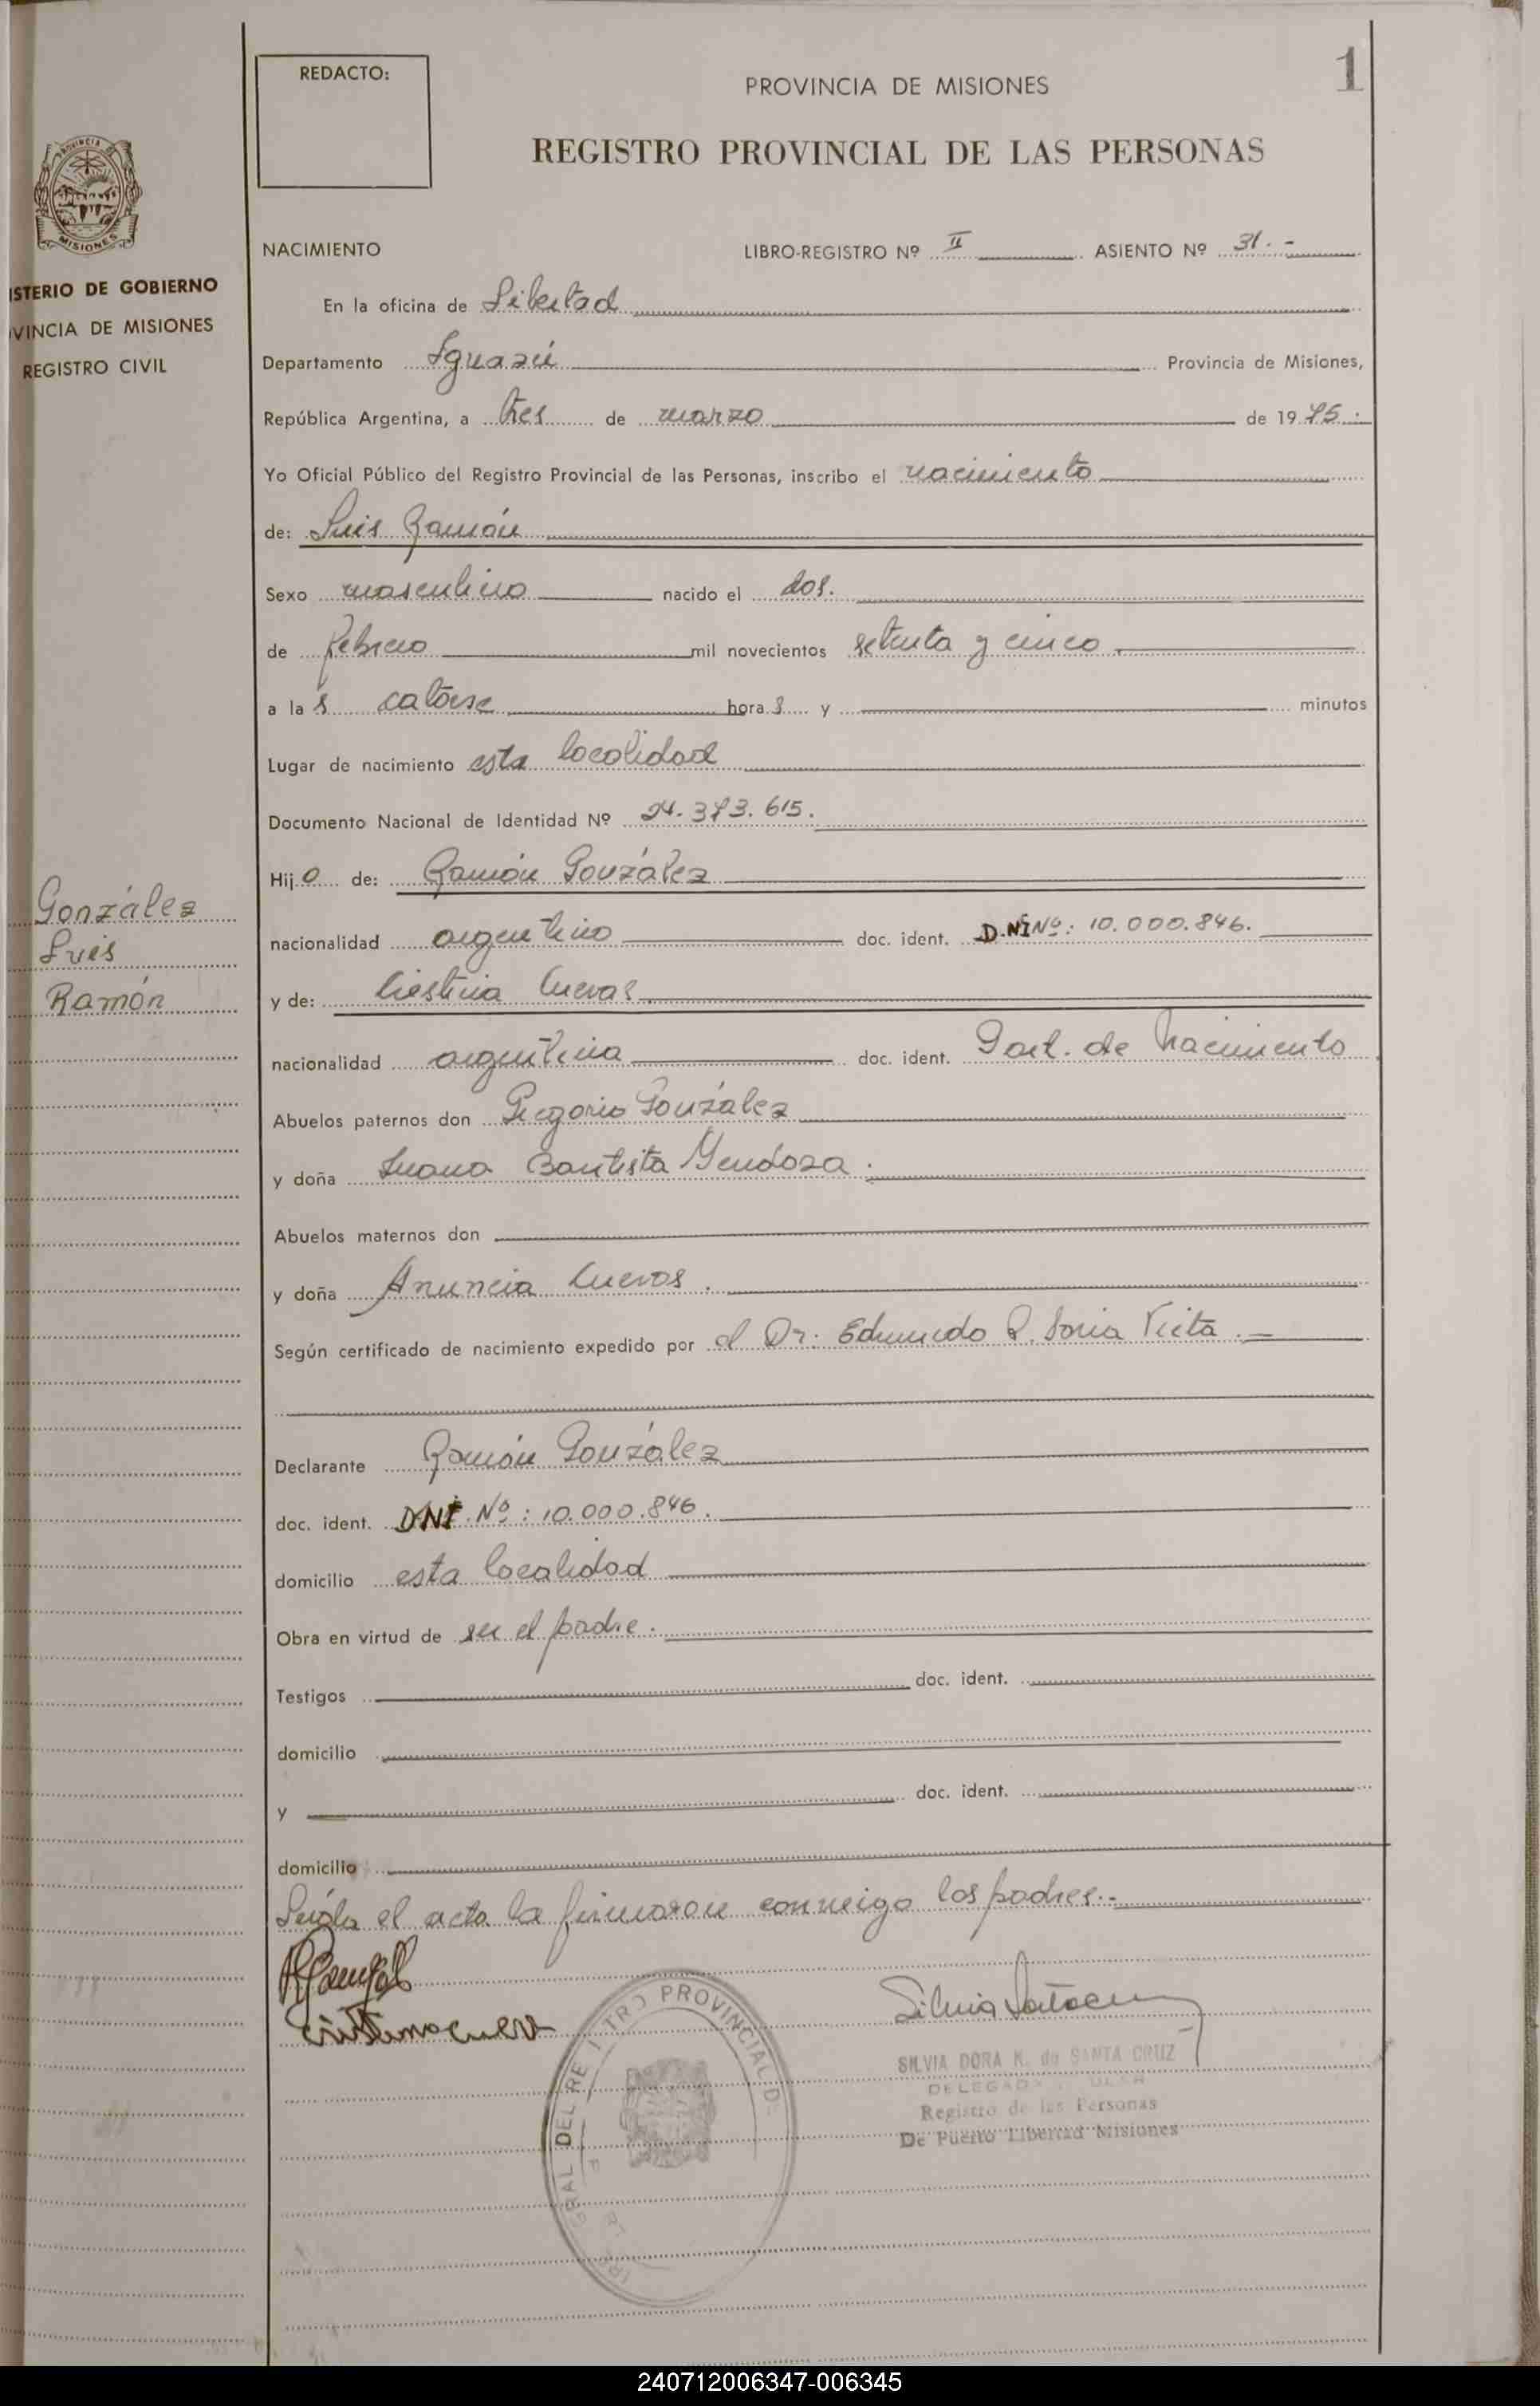 REDACTO:
PROVINCIA DE MISIONES
1
REGISTRO PROVINCIAL DE LAS PERSONAS
PROVINCIA DE
MISIONES
ISTERIO DE GOBIERNO
VINCIA DE MISIONES
REGISTRO CIVIL
NACIMIENTO LIBRO-REGISTRO Nº II ASIENTO Nº 31.-
En la oficina de Libertad
Departamento Iguazú Provincia de Misiones,
República Argentina, a tres de marzo de 1975.
Yo Oficial Público del Registro Provincial de las Personas, inscribo el nacimiento
de: Luis Ramón
Sexo masculino nacido el dos.
de febrero mil novecientos setenta y cinco.
a las catorse horas y minutos
Lugar de nacimiento esta localidad
Documento Nacional de Identidad Nº 24.373.615.
Hijo de: Ramón González
nacionalidad argentino doc. ident. D.NI Nº: 10.000.846.
y de: Cristina Cuevas
nacionalidad argentina doc. ident. Part. de Nacimiento
Abuelos paternos don Gregorio González
y doña Juana Bautista Mendoza.
Abuelos maternos don
y doña Anuncia Cuevas.
Según certificado de nacimiento expedido por el Dr. Edmundo R. Soria Vieta.
Declarante Ramón González
doc. ident. DNI. Nº: 10.000.846.
domicilio esta localidad
Obra en virtud de ser el padre.
Testigos doc. ident.
domicilio
y doc. ident.
domicilio
Leída el acta la firmaron conmigo los padres.-
González
Luis
Ramón
SILVIA DORA K. de SANTA CRUZ
DELEGADA TITULAR
Registro de las Personas
De Puerto Libertad Misiones
GRAL DEL REGISTRO PROVINCIAL DE
240712006347-006345